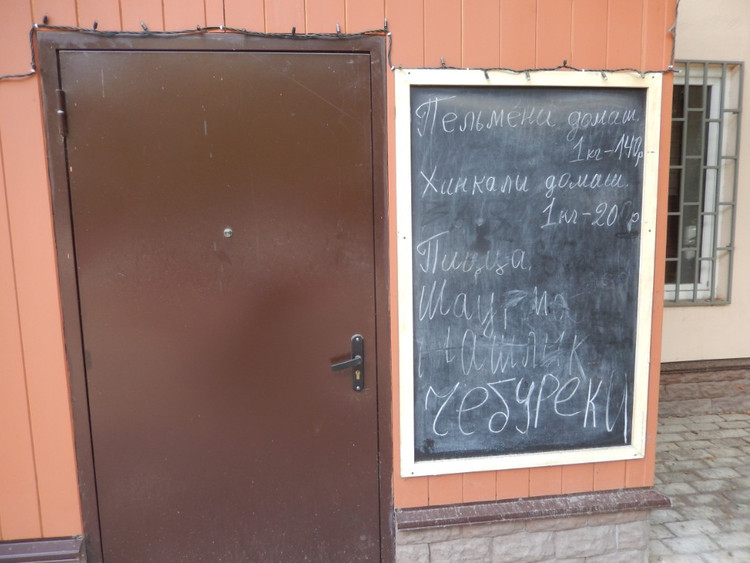 Пельмени домаш.
1кг-140р
Хинкали домаш.
1кг-200р
Пицца
Шаурма
Шашлык
Чебуреки